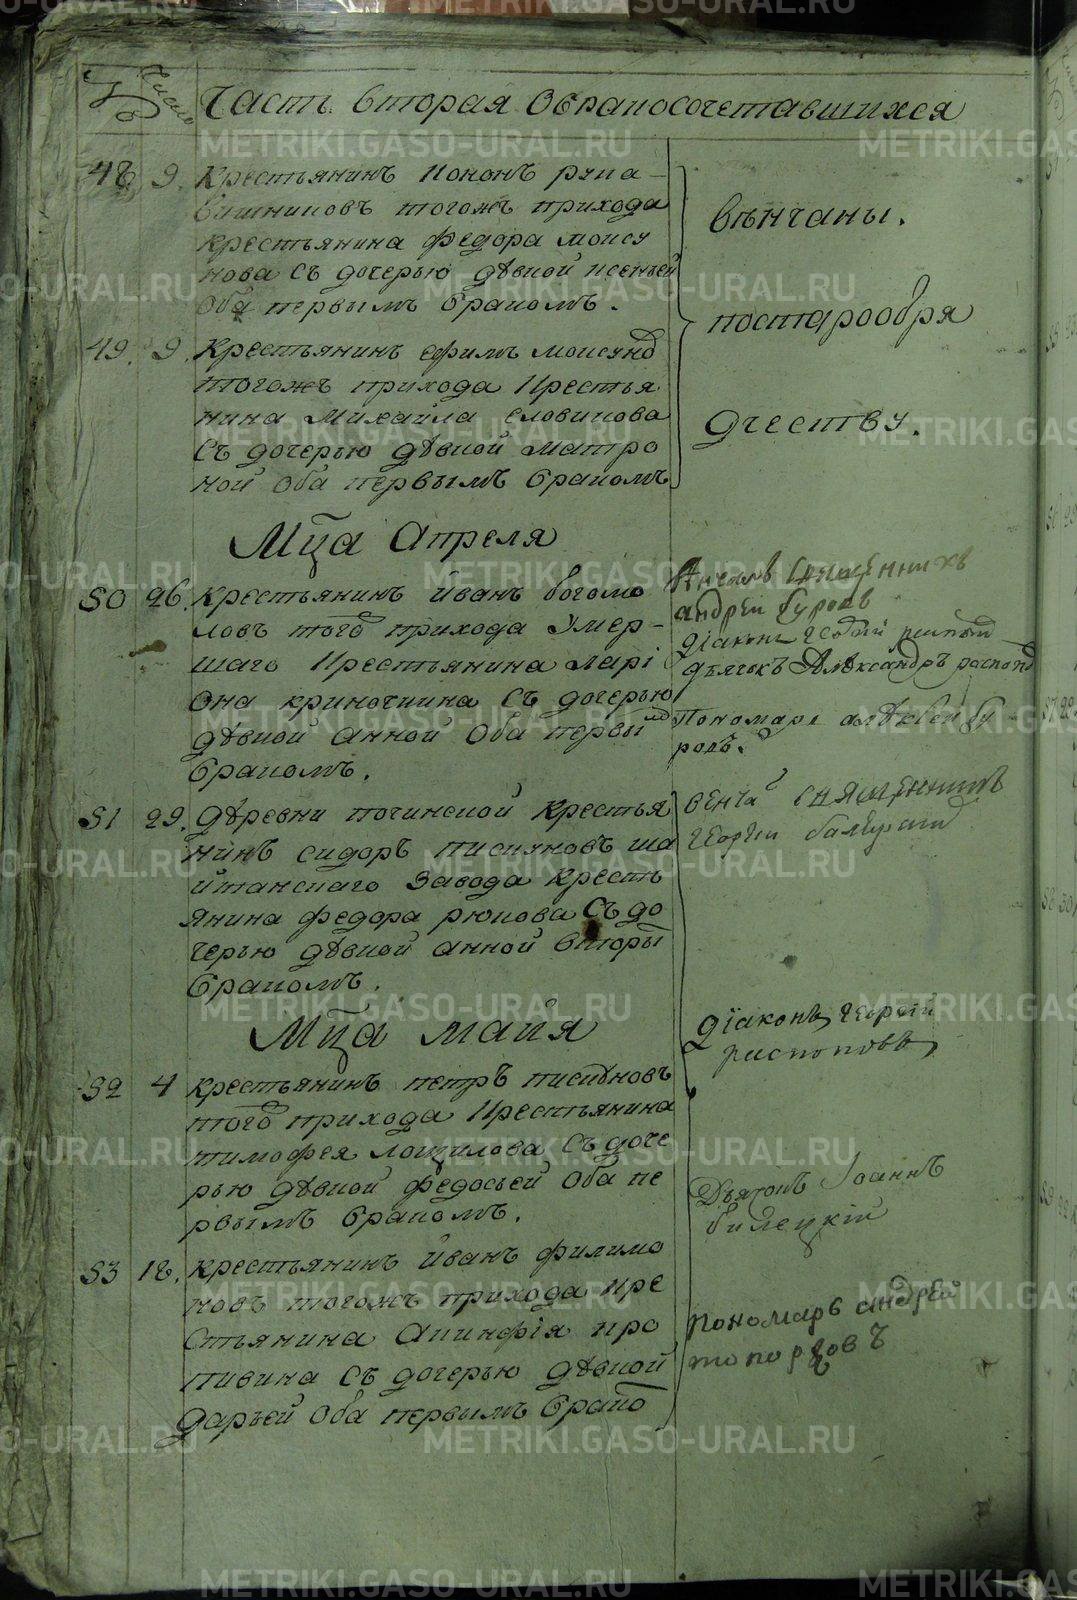 Число
Часть вторая Обракосочетавшихся
48 9. Крестьянинъ Кононъ рука
вишниковъ тогожъ прихода
крестьянина федора моису
нова Съ дочерью дѣвкой
Оба первымъ бракомъ.
49. 9. Крестьянинъ ефимъ моисунō
тогожъ прихода Крестья
нина Михайла словикова
Съ дочерью дѣвкой матро
ной Оба первымъ бракомъ
вѣнчаны.
постарообря
дчеству.
Мца Апреля
50 26. Крестьянинъ йванъ богомо
ловъ того прихода Умер-
шаго Крестьянина ларі
Она криночкина Съ дочерью
дѣвкой анной Оба первы
бракомъ.
Священникъ
андрей буровъ
діаконъ
дьячокъ Александръ распоп
Пономаръ алѣксѣй бу
ровъ.
51 29. Дѣревни починской Крестья
нинъ сидоръ пискуновъ ша
йтанскаго Завода Кресть
янина федора рюкова Съ до
черью дѣвкой анной вторы
бракомъ.
венча священникъ
георгий
Діаконъ георгий
распоповъ
Мца майя
52 4 крестьянинъ петръ пискуновъ
того прихода Крестьянина
тимофея лощилова Съ доче
рью дѣвкой федосьей Оба пе
рвымъ бракомъ.
Дьячокъ Іоаннъ
билецкій
53 18. крестьянинъ йванъ филимо
новъ тогожъ прихода кре
стьянина Акинфія кро
пивина Съ дочерью дѣвкой
дарьей Оба первымъ брако
пономаръ андрѣй
топорковъ
METRIKI.GASO-URAL.RU